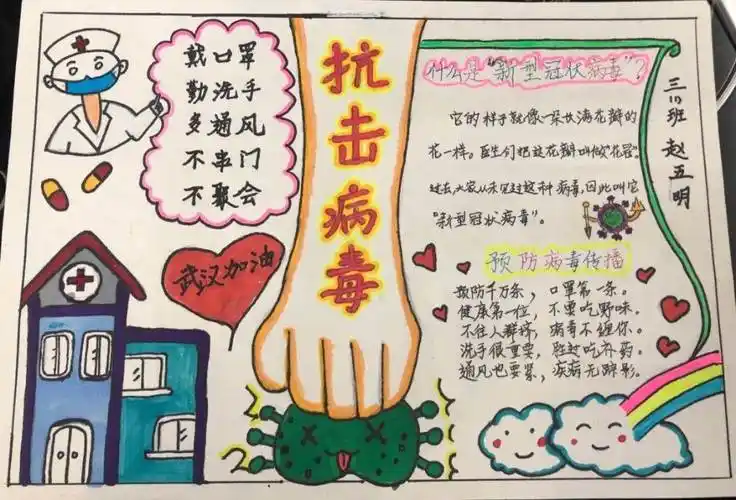 戴口罩
勤洗手
多通风
不串门
不聚会
武汉加油
抗击病毒
什么是“新型冠状病毒”？
它的样子就像一朵长满花瓣的
花一样。医生们把这花瓣叫做“花冠”。
过去大家从未见过这种病毒，因此叫它
“新型冠状病毒”。
预防病毒传播
预防千万条，口罩第一条。
健康第一位，不要吃野味。
不往人群挤，病毒不缠你。
洗手很重要，胜过吃补药。
通风也要紧，疾病无踪影。
三(1)班 赵五明